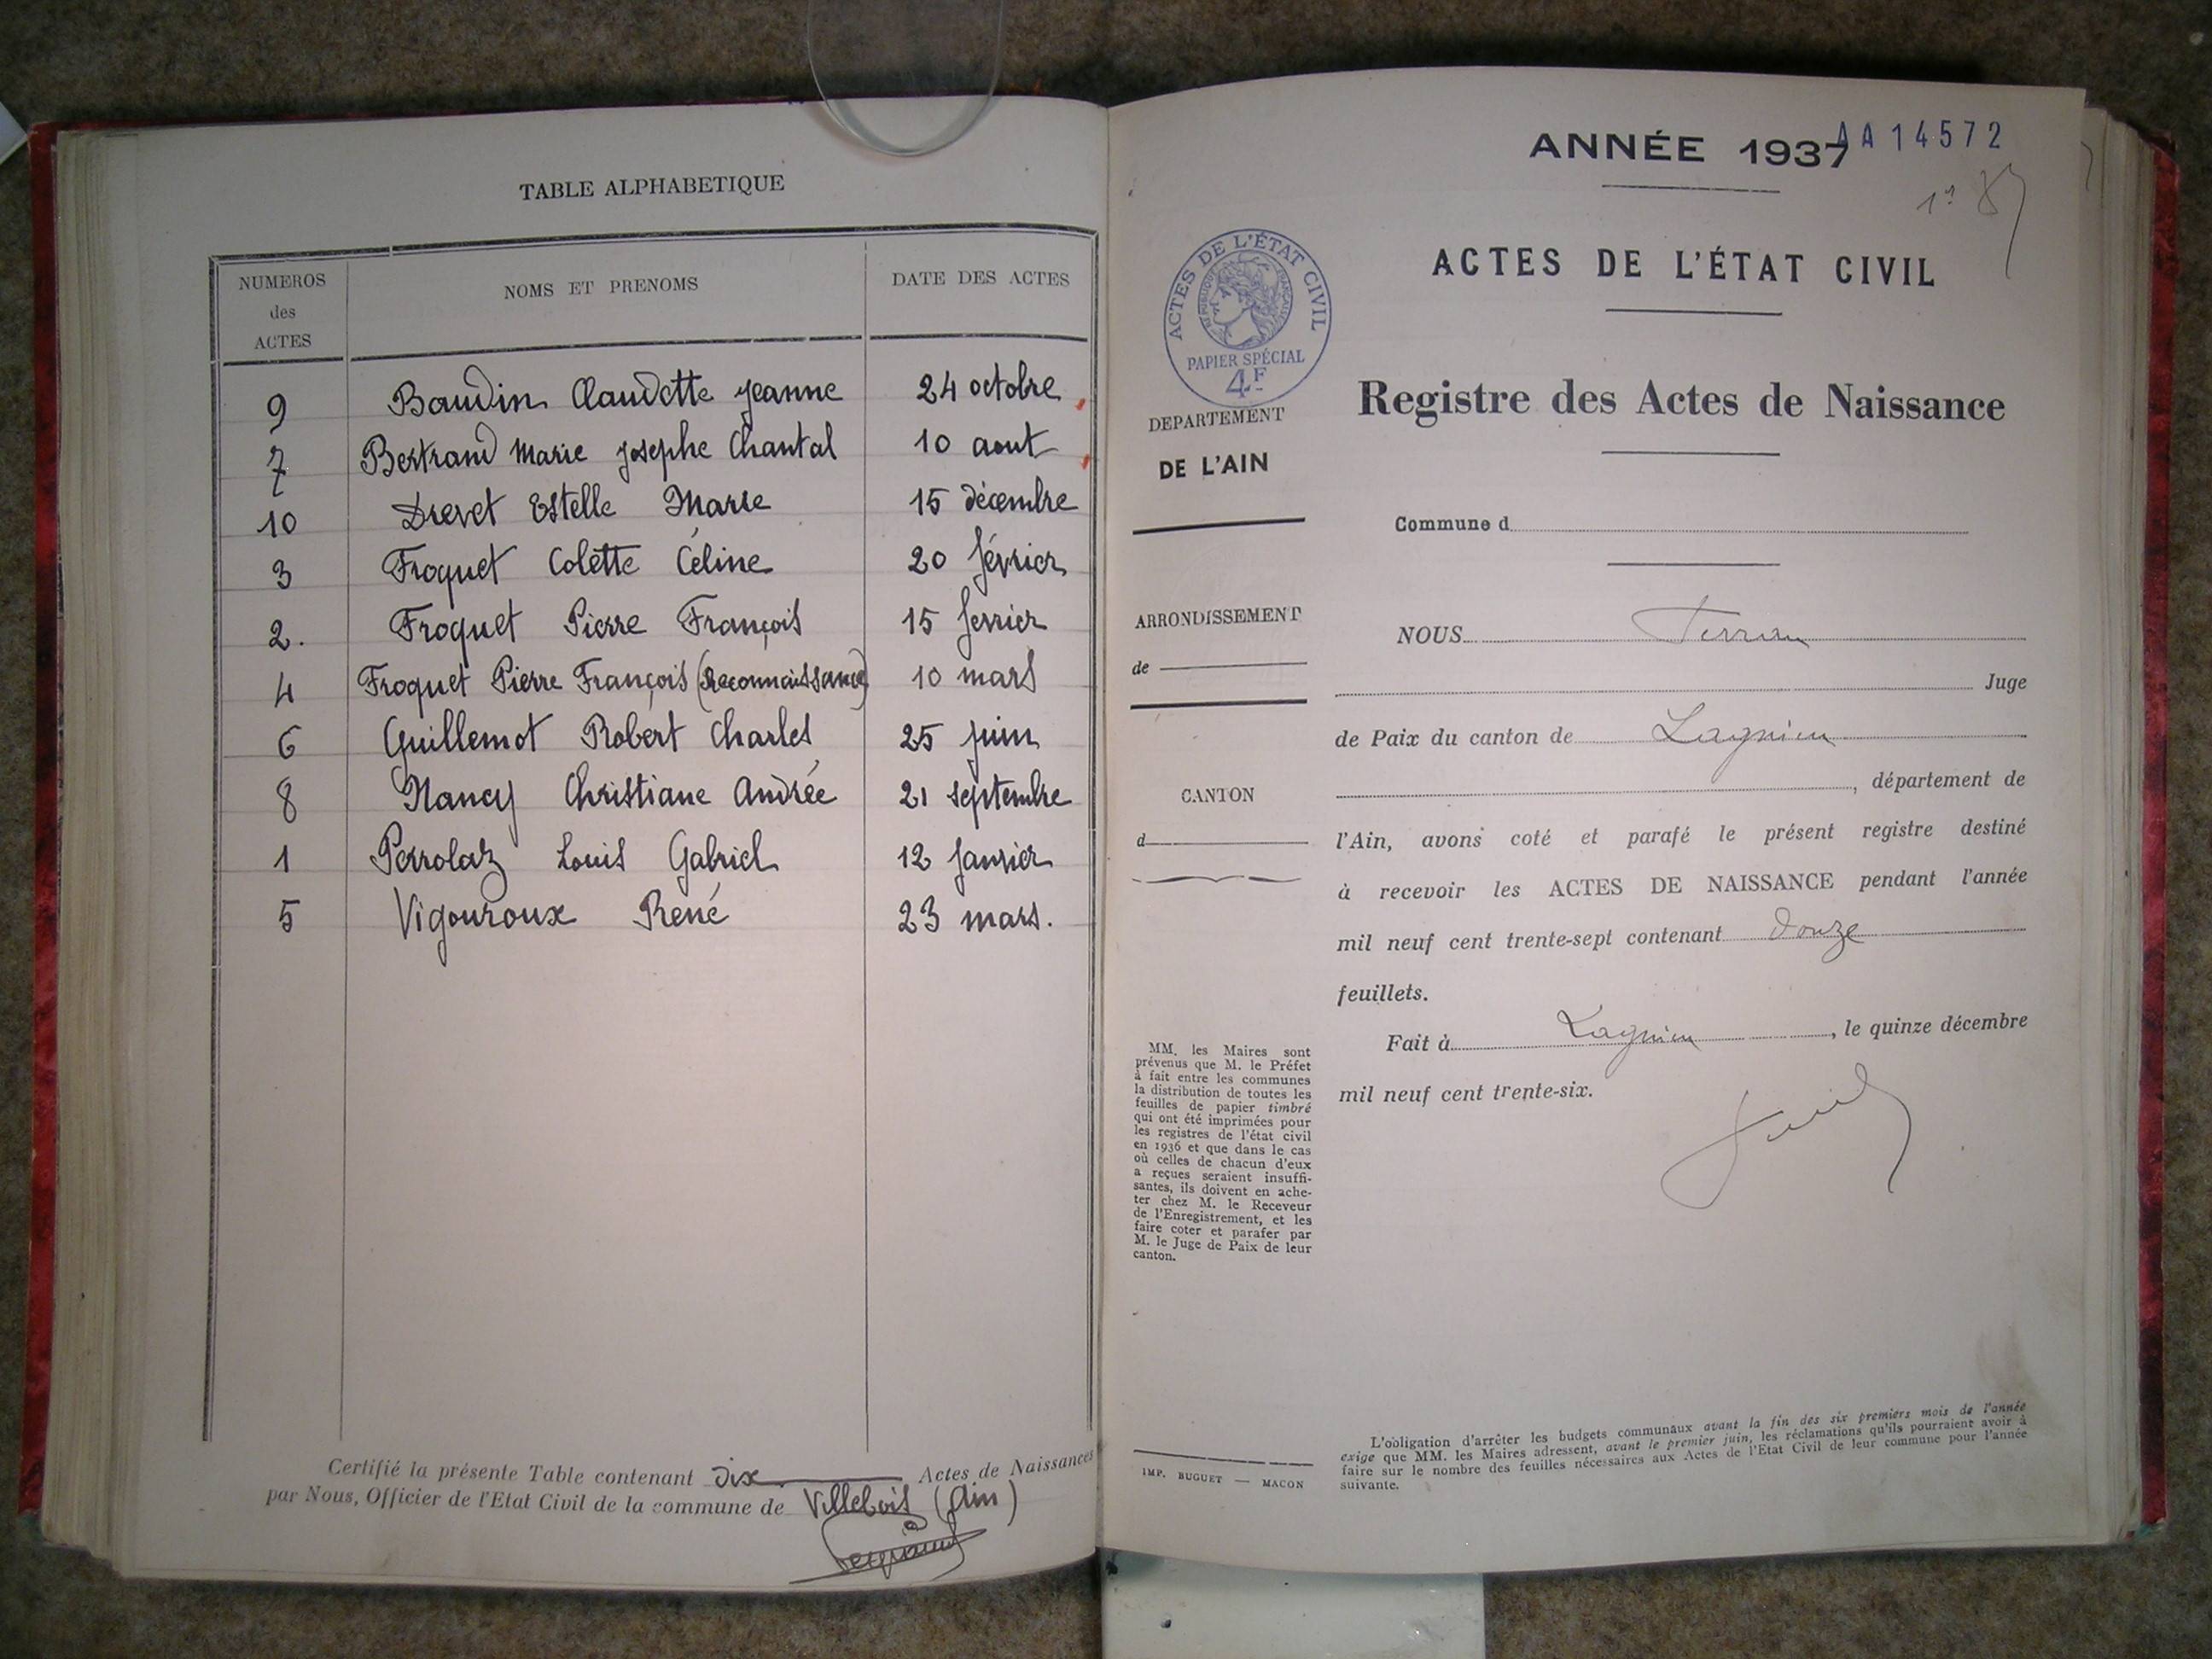 TABLE ALPHABETIQUE
NUMEROS des ACTES NOMS ET PRENOMS DATE DES ACTES
9 Baudin Claudette Jeanne 24 octobre
7 Bertrand Marie Josephe Chantal 10 aout
10 Drevet Estelle Marie 15 décembre
3 Froquet Colette Céline 20 février
2. Froquet Pierre François 15 fevrier
4 Froquet Pierre François (Reconnaissance) 10 mars
6 Guillemot Robert Charles 25 juin
8 Nancy Christiane Andrée 21 septembre
1 Perrolaz Louis Gabriel 12 janvier
5 Vigouroux René 23 mars.
Certifié la présente Table contenant dix Actes de Naissances
par Nous, Officier de l'Etat Civil de la commune de Villebois (Ain)
ANNÉE 1937
AA14572
ACTES DE L'ÉTAT CIVIL
ACTES DE L'ÉTAT CIVIL
RÉPUBLIQUE FRANÇAISE
PAPIER SPÉCIAL
4F
Registre des Actes de Naissance
DEPARTEMENT
DE L'AIN
Commune d
ARRONDISSEMENT
de
CANTON
d
NOUS
Juge
de Paix du canton de Lagnieu
, département de
l'Ain, avons coté et parafé le présent registre destiné
à recevoir les ACTES DE NAISSANCE pendant l'année
mil neuf cent trente-sept contenant douze
feuillets.
Fait à Lagnieu, le quinze décembre
mil neuf cent trente-six.
MM. les Maires sont
prévenus que M. le Préfet
à fait entre les communes
la distribution de toutes les
feuilles de papier timbré
qui ont été imprimées pour
les registres de l'état civil
en 1936 et que dans le cas
où celles de chacun d'eux
a reçues seraient insuffi-
santes, ils doivent en ache-
ter chez M. le Receveur
de l'Enregistrement, et les
faire coter et parafer par
M. le Juge de Paix de leur
canton.
IMP. BUGUET — MACON
L'obligation d'arrêter les budgets communaux avant la fin des six premiers mois de l'année
exige que MM. les Maires adressent, avant le premier juin, les réclamations qu'ils pourraient avoir à
faire sur le nombre des feuilles nécessaires aux Actes de l'Etat Civil de leur commune pour l'année
suivante.